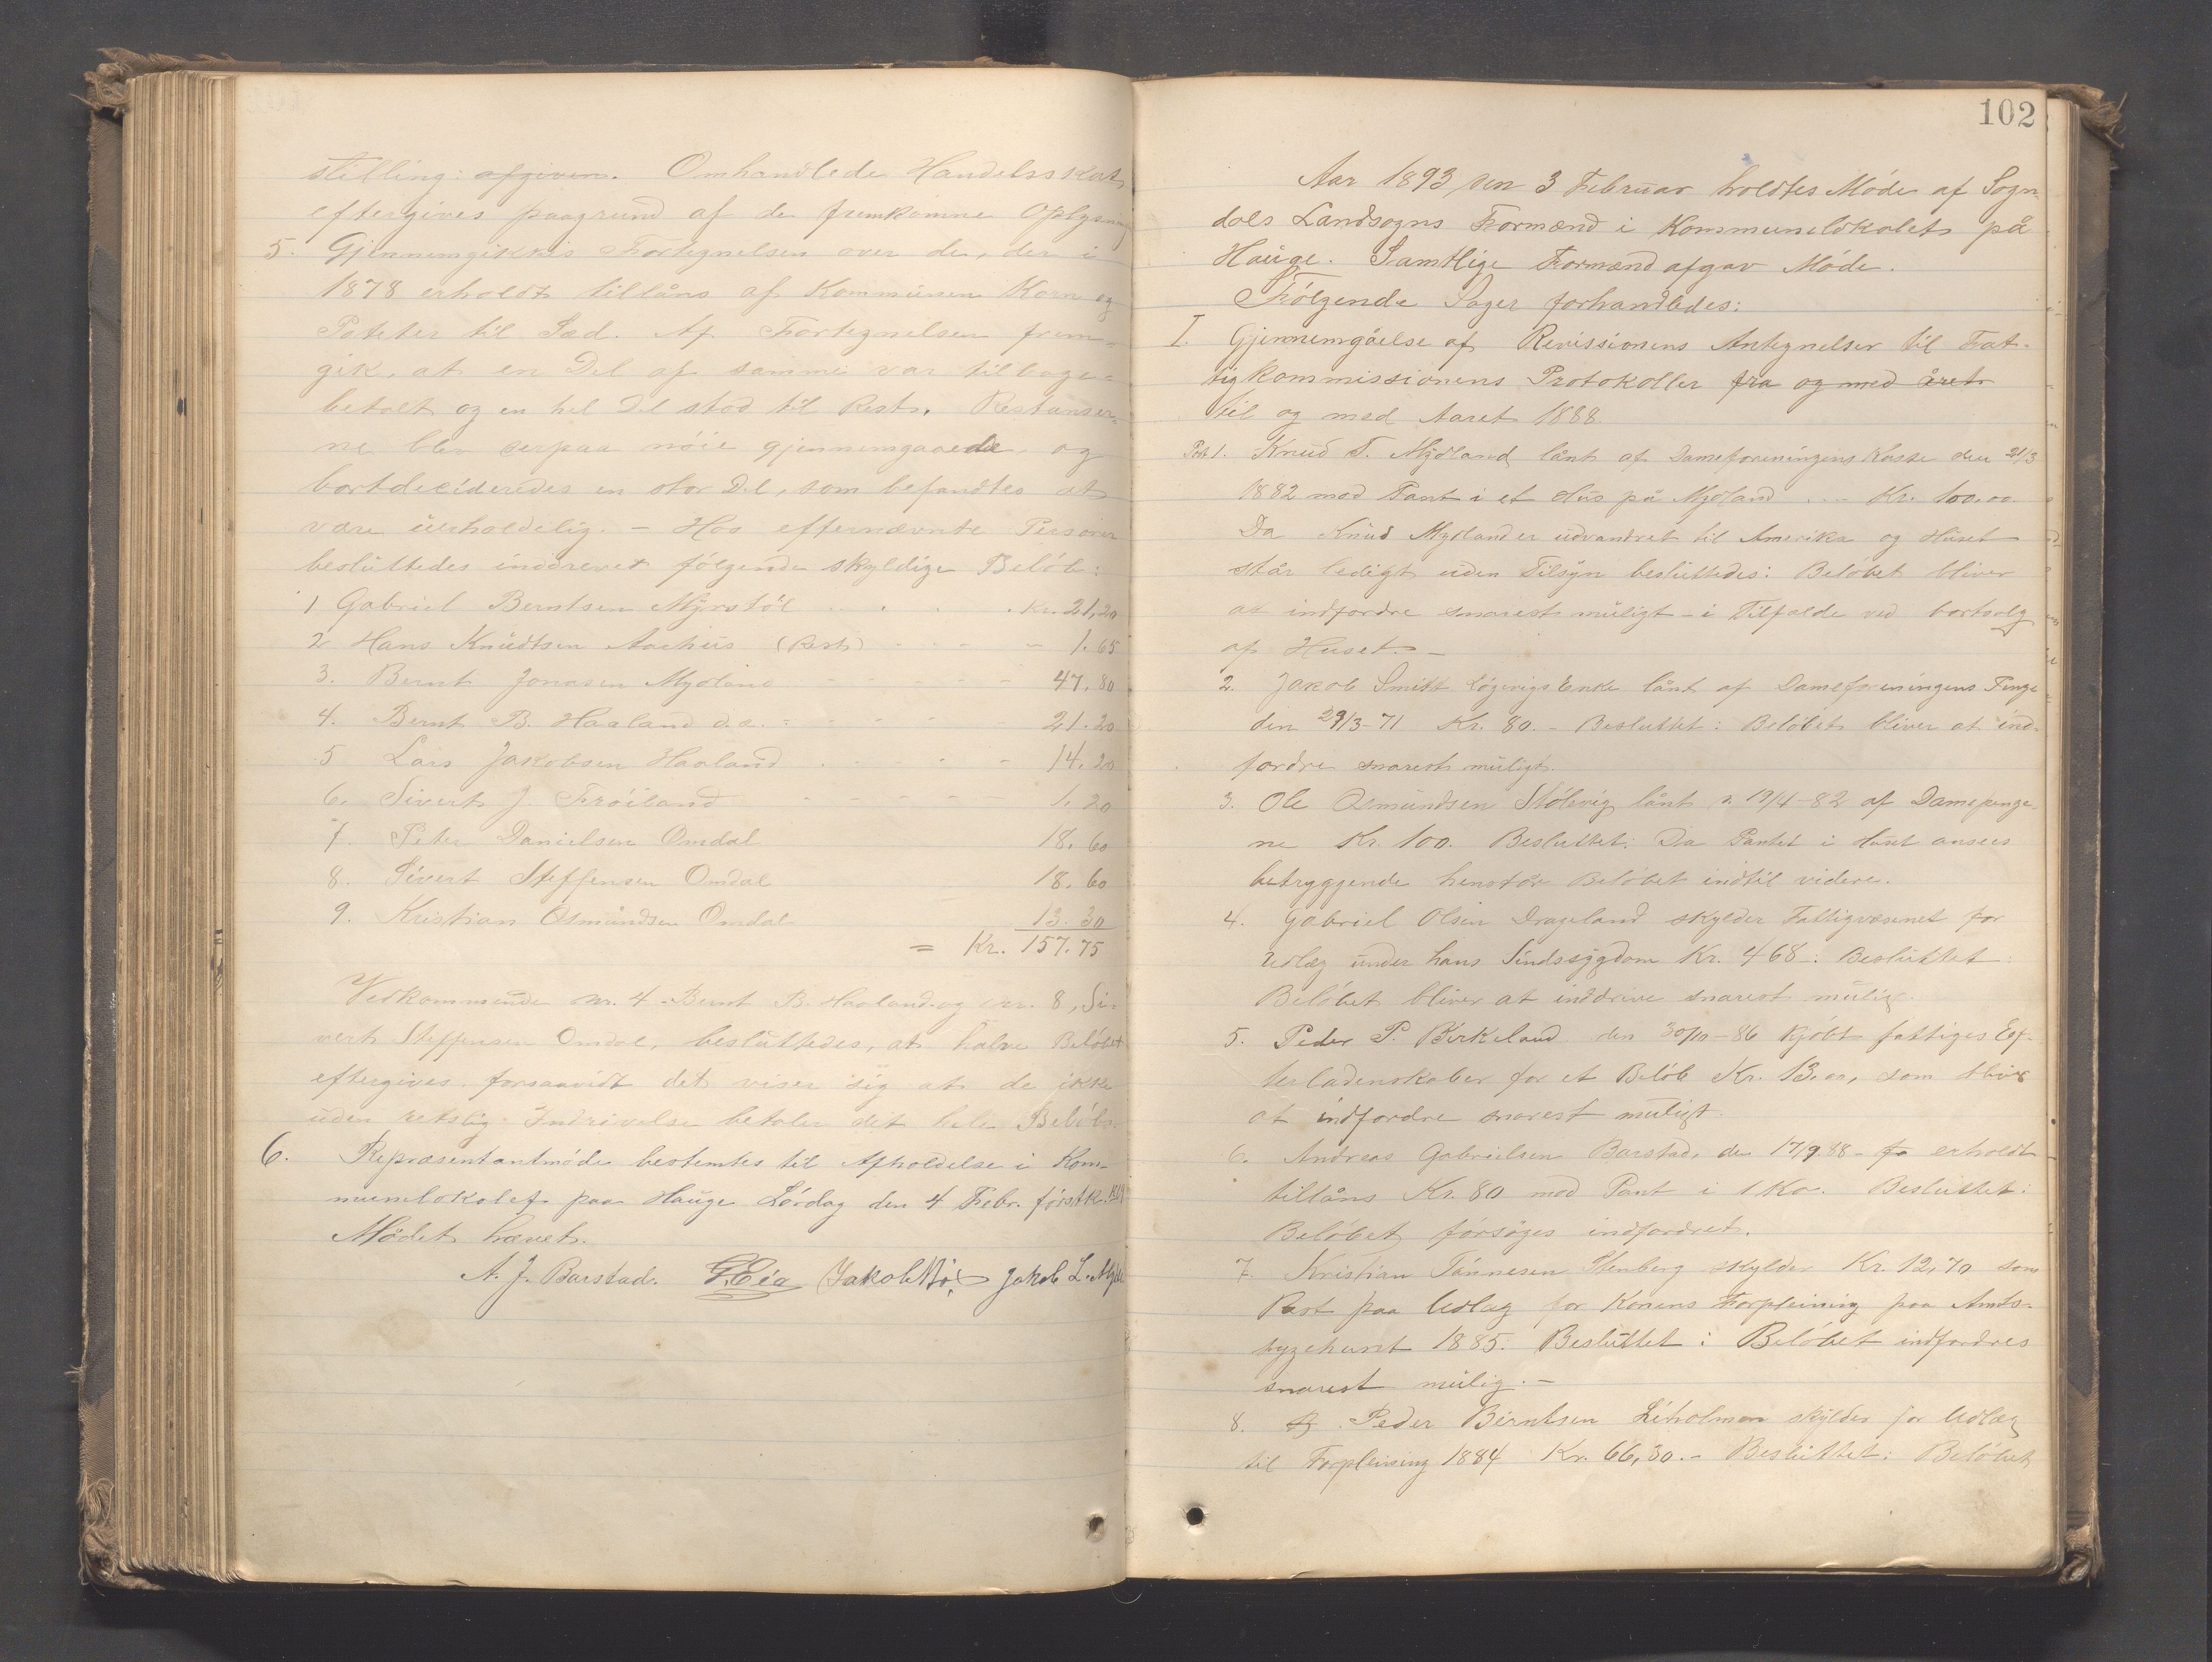 stilling: afgiven. Omhandlede Handelsskat
eftergives paagrund af de fremkomne Oplysning
5. Gjennemgikkes Fortegnelsen over de, der i
1878 erholdt tillåns af Kommunen Korn og
Poteter til Sæd. Af Fortegnelsen frem-
gik, at en Del af samme var tilbage-
betalt og en hel Del stod til Rest. Restanser-
ne blev derpaa nöie gjennemgaaede og
bortdecideredes en stor Del, som befandtes at
være uerholdelig. - Hos efternævnte Personer
besluttedes inddrevet fölgende skyldige Belöb:
1 Gabriel Berntsen Myrstöl . . . . Kr. 21,20
2 Hans Knudtsen Aarhus (Rest) - - - - 1.65
3. Bernt Jonasen Mydland - - - - - 47.80
4. Bernt B. Haaland d.æ. - - - - - 21.20
5 Lars Jakobsen Haaland . . . . - 14.20
6. Sivert J. Fröiland - - - - - 1.20
7. Peter Danielsen Omdal 18.60
8. Sivert Steffensen Omdal 18.60
9. Kristian Osmundsen Omdal 13.30
= Kr. 157.75
Vedkommende nr. 4 - Bernt B. Haaland og nr. 8, Si-
vert Steffensen Omdal, besluttedes, at halve Belöbet
eftergives forsaavidt det viser sig at de ikke
uden retslig Inddrivelse betaler det hele Belöb.
6. Repræsentantmöde bestemtes til Afholdelse i Kom-
munelokalet paa Hauge Lördag den 4 Febr. förstk.
Mödet hævet.
A. J. Barstad. Jakob L. Mydl
102
Aar 1893 den 3 Februar holdtes Möde af Sogn-
dals Landsogns Formænd i Kommunelokalet på
Hauge. Samtlige Formænd afgav Möde.
Fölgende Sager forhandledes:
I. Gjennemgåelse af Revissionens Antegnelser til Fat-
tigkommissionens Protokoller fra og med året
til og med Aaret 1888.
Post 1. Knud T. Mydland lånt af Dameforeningens Kasse den 21/3
1882 mod Pant i et Hus på Mydland .... Kr. 100,00
Da Knud Mydland er udvandret til Amerika og Huset
står ledigt uden Tilsyn besluttedes: Belöbet bliver
at indfordre snarest muligt - i Tilfælde ved bortsalg
af Huset. -
2. Jakob Smitt Lögevigs Enke lånt af Dameforeningens Penge
den 29/3-71 Kr. 80. - Besluttet: Belöbet bliver at ind-
fordre snarest muligt.
3. Ole Osmundsen Stölevig lånt d. 19/4-82 af Damepenge-
ne Kr. 100. Besluttet: Da Pantet i Huset ansees
betryggende henstår Belöbet indtil videre.
4. Gabriel Olsen Drageland skylder Fattigvæsenet for
Udlæg under hans Sindssygdom Kr. 468: Besluttet:
Belöbet bliver at inddrive snarest mulig.
5. Peder P. Birkeland den 30/10-86 kjöbt fattiges Ef-
terladenskaber for et Belöb Kr. 13.00, som bliver
at indfordre snarest muligt.
6. Andreas Gabrielsen Barstad, den 17/9 88 - fo erholdt
tillåns Kr. 80 mod Pant i 1 Ko. Besluttet:
Belöbet forsöges indfordret.
7. Kristian Tönnesen Stenberg skylder Kr. 12,70 som
Rest paa Udlæg for Konens Forpleining paa Amts-
sygehuset 1885. Besluttet: Belöbet indfordres
snarest mulig. -
8. Peder Berntsen Liholmen skylder for Udlæg
til Forpleining 1884 Kr. 66,30. - Besluttet: Belöbet